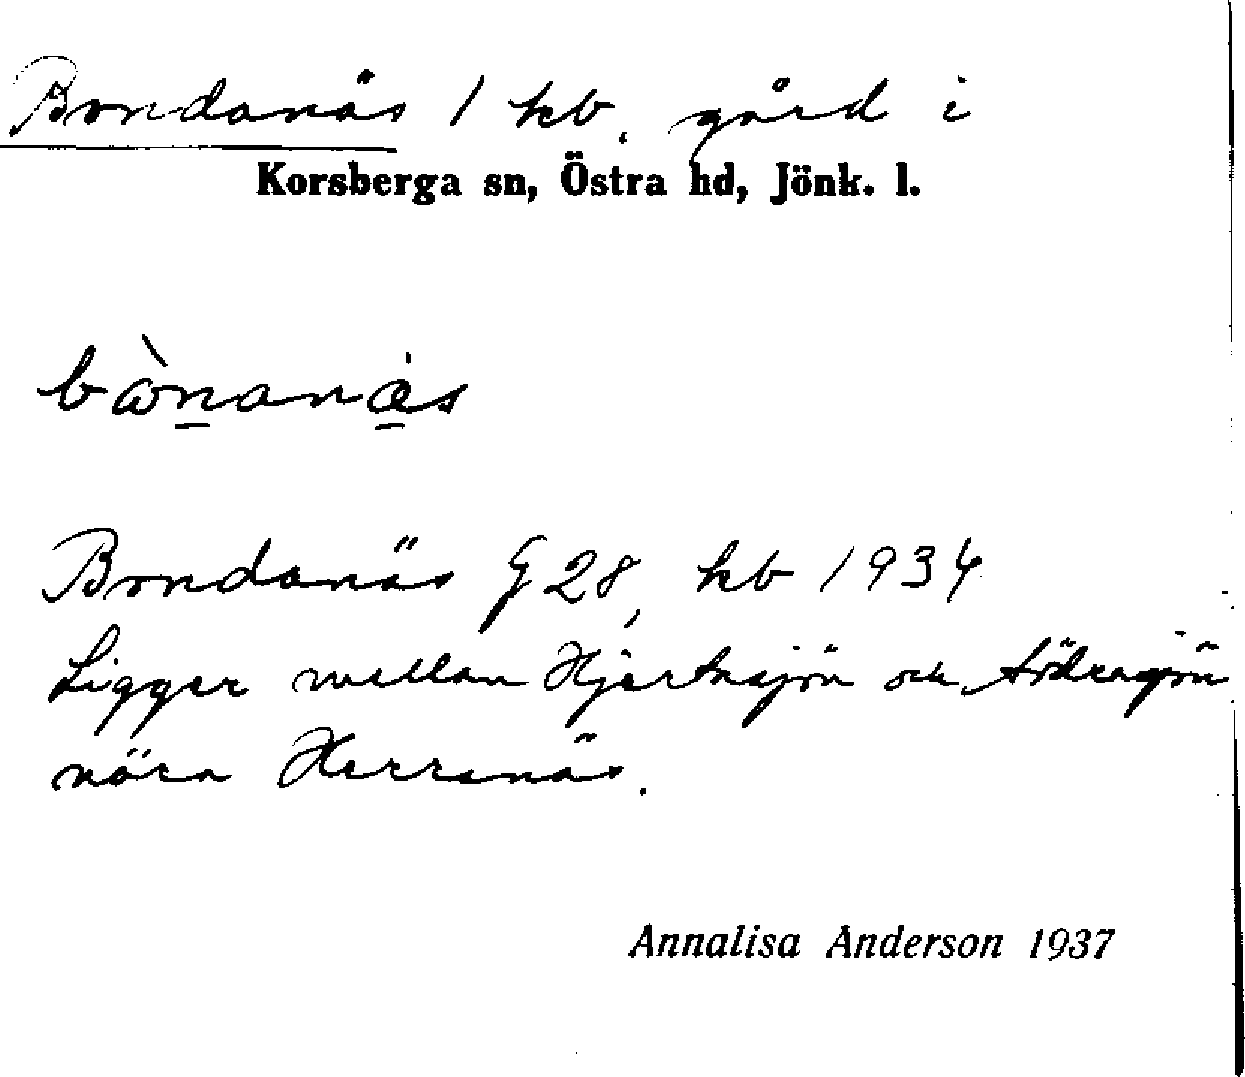 Bondanäs 1 hb. gård i
Korsberga sn, Östra hd, Jönk. l.
Bondanäs G 28, kb 1934
Ligger mellan Hjärtasjön och Södrasjön
nära Herranäs.
Annalisa Anderson 1937